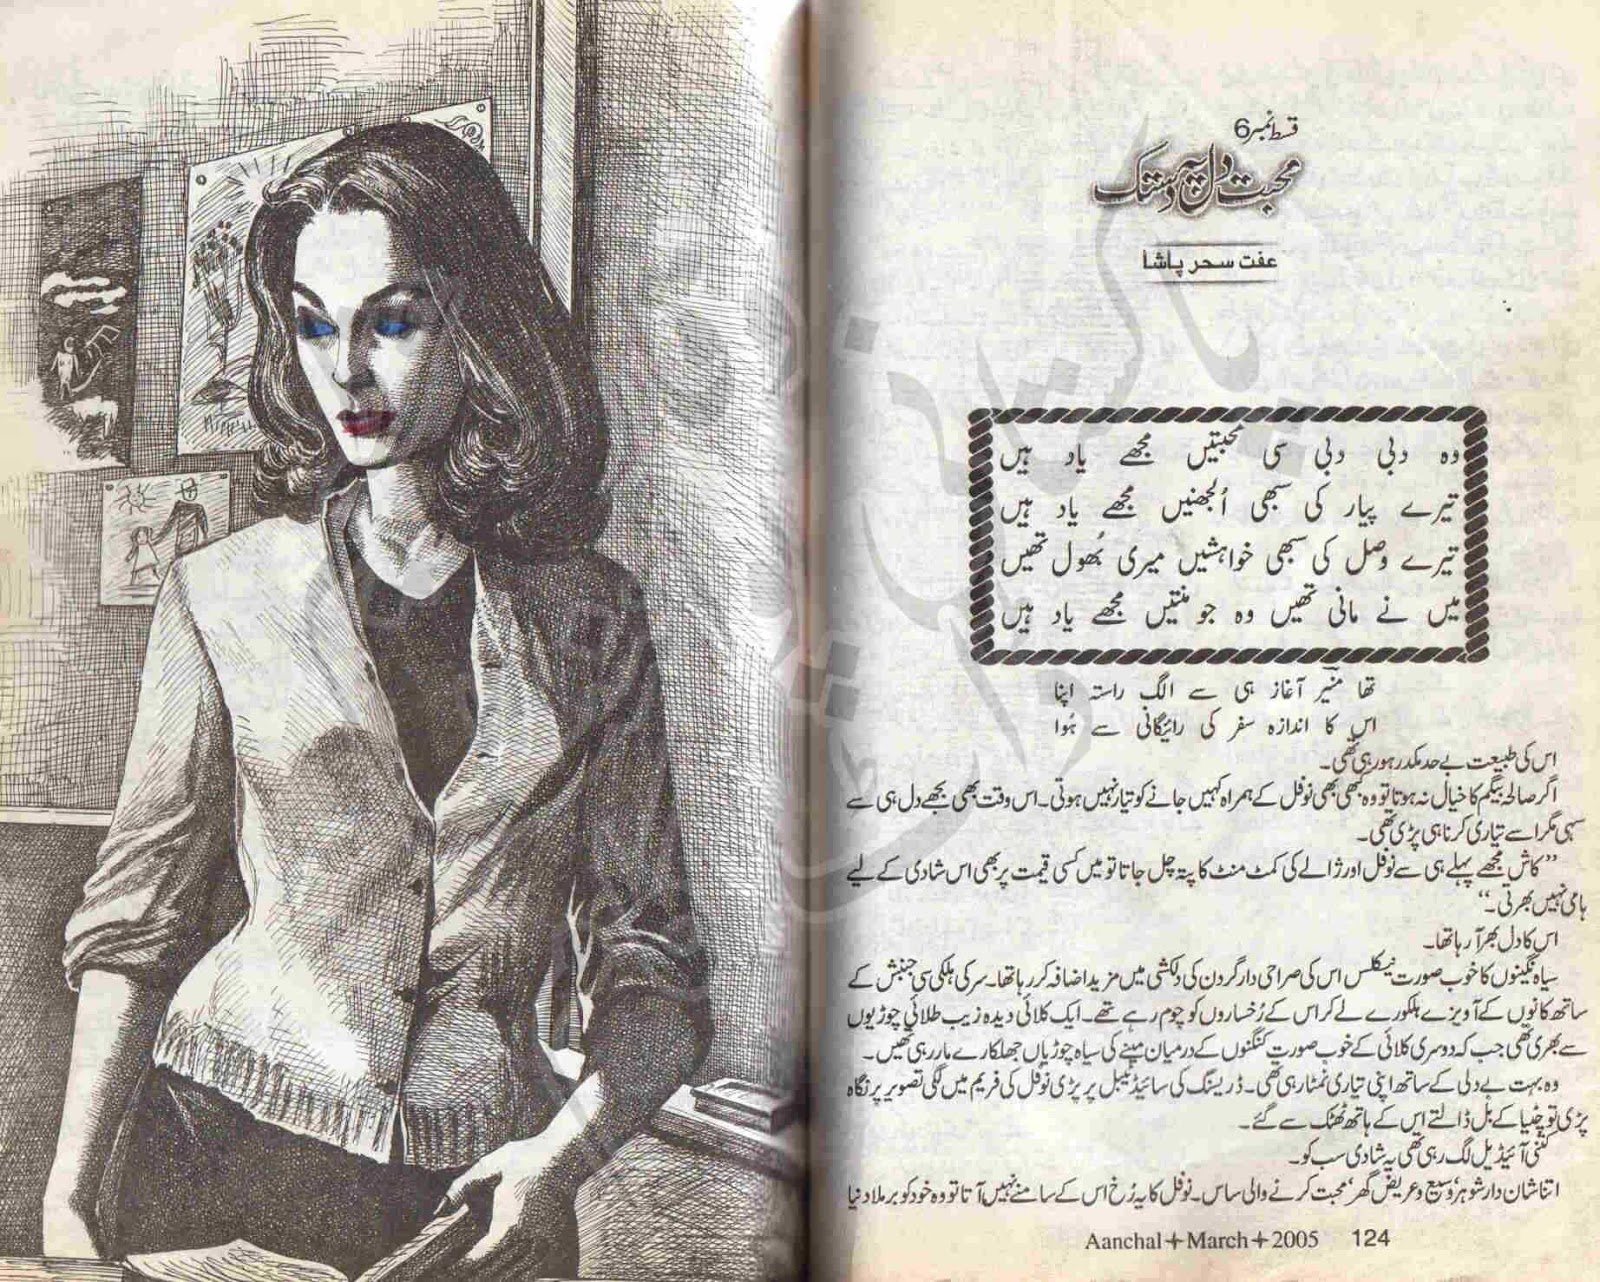 قسط نمبر 6
محبت دل پہ دستک
عفت سحر پاشا
وہ دبی دبی سی محبتیں مجھے یاد ہیں
تیرے پیار کی سبھی اُلجھنیں مجھے یاد ہیں
تیرے وصل کی سبھی خواہشیں میری بُھول تھیں
میں نے مانی تھیں وہ جو منتیں مجھے یاد ہیں
تھا منیر آغاز ہی سے الگ راستہ اپنا
اس کا اندازہ سفر کی رائیگانی سے ہُوا
اس کی طبیعت بے حد مکدر ہو رہی تھی۔
اگر صالحہ بیگم کا خیال نہ ہوتا تو وہ کبھی بھی نوفل کے ہمراہ کہیں جانے کو تیار نہیں ہوتی۔ اس وقت بھی بجھے دل ہی سے
سہی مگر اسے تیاری کرنا ہی پڑی تھی۔
”کاش مجھے پہلے ہی سے نوفل اور ژالے کی کمٹ منٹ کا پتہ چل جاتا تو میں کسی قیمت پر بھی اس شادی کے لیے
ہامی نہیں بھرتی۔“
اس کا دل بھر آ رہا تھا۔
سیاہ نگینوں کا خوب صورت نیکلس اس کی صراحی دار گردن کی دلکشی میں مزید اضافہ کر رہا تھا۔ سر کی ہلکی سی جنبش کے
ساتھ کانوں کے آویزے ہلکورے لے کر اس کے رُخساروں کو چوم رہے تھے۔ ایک کلائی دیدہ زیب طلائی چوڑیوں
سے بھری تھی جب کہ دوسری کلائی کے خوب صورت کنگنوں کے درمیان مینے کی سیاہ چوڑیاں جھلکارے مار رہی تھیں۔
وہ بہت بے دلی کے ساتھ اپنی تیاری نمٹا رہی تھی۔ ڈریسنگ کی سائیڈ ٹیبل پر پڑی نوفل کی فریم میں لگی تصویر پر نگاہ
پڑی تو چٹیا کے بل ڈالتے اس کے ہاتھ ٹھٹک سے گئے۔
کتنی آئیڈیل لگ رہی تھی یہ شادی سب کو۔
اتنا شان دار شوہر، وسیع و عریض گھر، محبت کرنے والی ساس۔ نوفل کا یہ رُخ اس کے سامنے نہیں آتا تو وہ خود کو برملا دنیا
Aanchal+March+2005 124